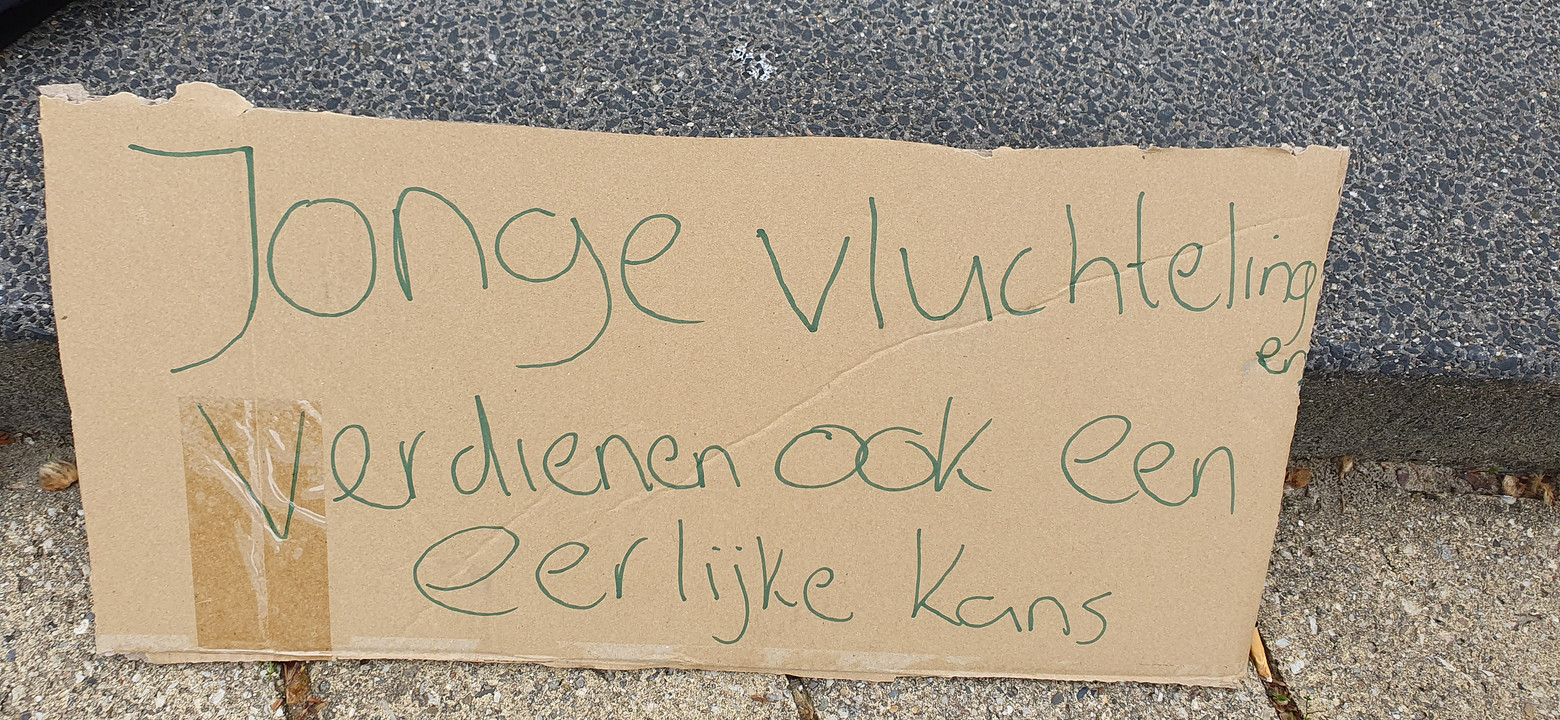 Jonge vluchteling
en
Verdienen ook een
eerlijke kans